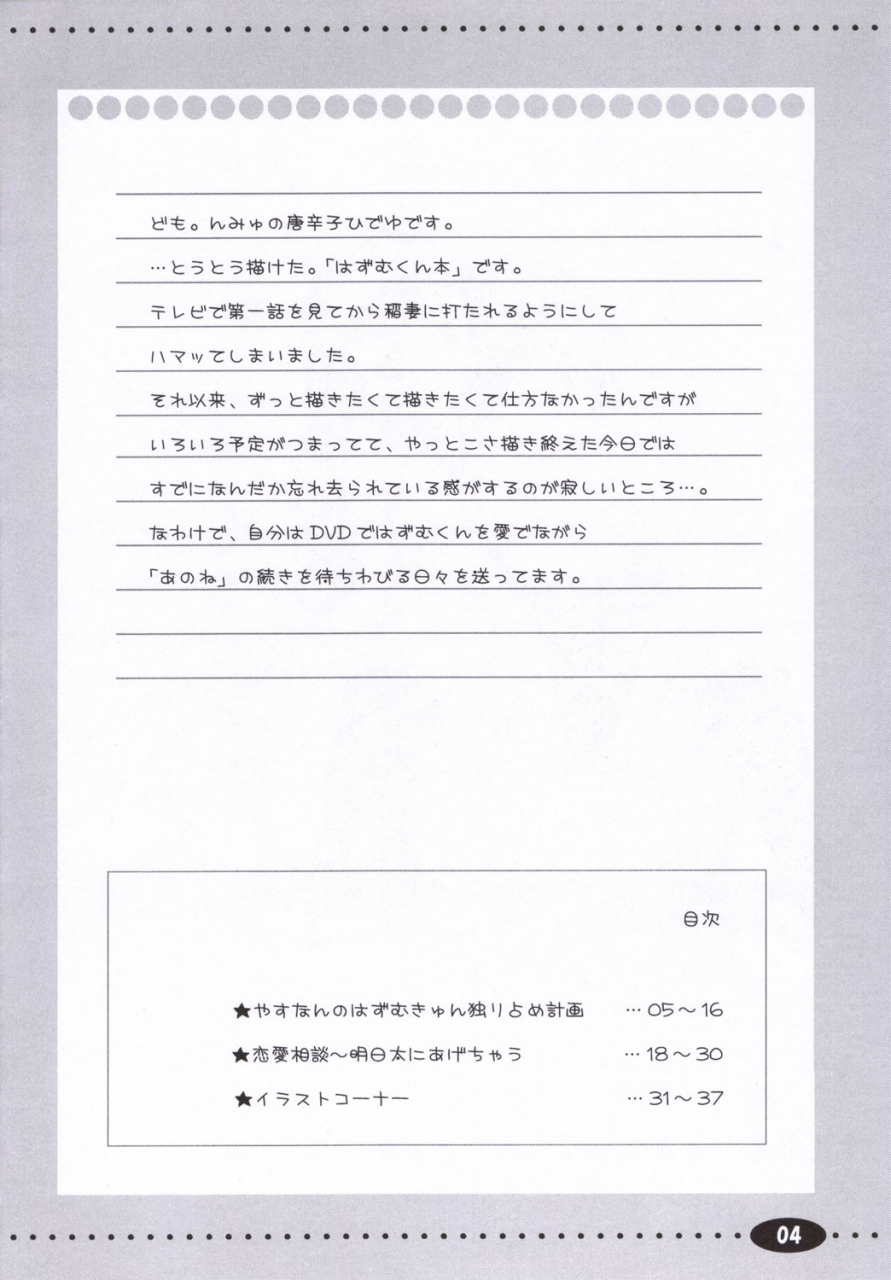 ども。んみゅの唐辛子ひでゆです。
…とうとう描けた。「はずむくん本」です。
テレビで第一話を見てから稲妻に打たれるようにして
ハマッてしまいました。
それ以来、ずっと描きたくて描きたくて仕方なかったんですが
いろいろ予定がつまってて、やっとこさ描き終えた今日では
すでになんだか忘れ去られている感がするのが寂しいところ…。
なわけで、自分はDVDではずむくんを愛でながら
「あのね」の続きを待ちわびる日々を送ってます。
目次
★やすなんのはずむきゅん独り占め計画 …05～16
★恋愛相談～明日太にあげちゃう …18～30
★イラストコーナー …31～37
04